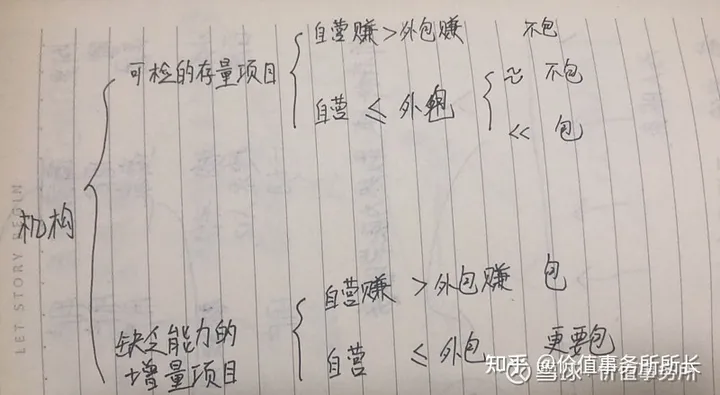 自营赚>外包赚 不包
可检的存量项目
≈ 不包
自营 ≤ 外包
<< 包
机构
LET STORY BEGIN
自营赚 >外包赚 包
缺乏能力的
增量项目
自营 ≤ 外包 更要包
知乎 @价值事务所所长
雪球:价值事务所